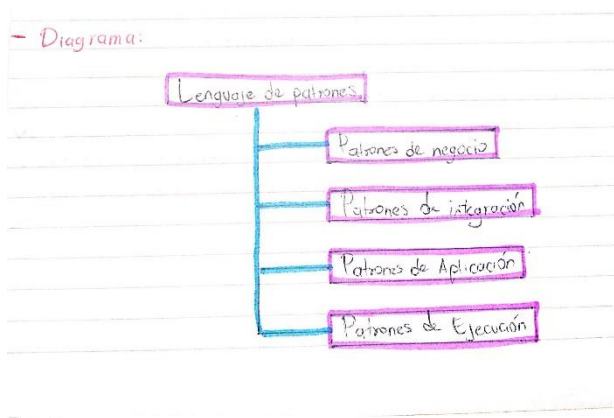 - Diagrama:
Lenguaje de patrones
Patrones de negocio
Patrones de integración
Patrones de Aplicación
Patrones de Ejecución